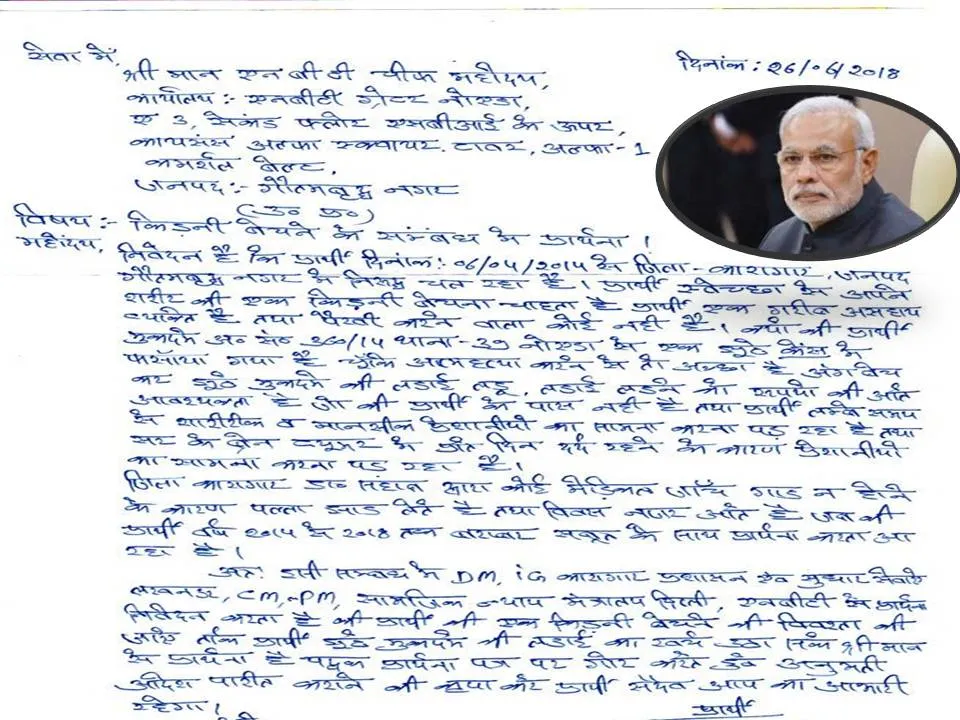 सेवा में,
दिनांक: 26/06/2018
श्री मान एनबीटी चीफ महोदय,
कार्यालय:- एनबीटी ग्रेटर नोएडा,
ए 3, सेकंड फ्लोर एसबीआई के ऊपर,
अल्फा स्क्वायर टावर, अल्फा-1
कमर्शल बेल्ट,
जनपद:- गौतमबुद्ध नगर
(उ० प्र०)
विषय:- किडनी बेचने के सम्बंध में प्रार्थना।
महोदय,
निवेदन है कि प्रार्थी दिनांक: 06/04/2014 से जिला-कारागार, जनपद
गौतमबुद्ध नगर में निरुद्ध चल रहा है। प्रार्थी स्वेच्छा से अपने
शरीर की एक किडनी बेचना चाहता है प्रार्थी एक गरीब असहाय
व्यक्ति है तथा पैरवी करने वाला कोई नही है। क्यो की प्रार्थी
मुकदमे अ० सं० 360/14 थाना-39 नोएडा से एक झूठे केस में
फसाया गया है चूंकि आत्महत्या करने से तो अच्छा है अंग बेच
कर झूठे मुकदमे की लडाई लडू, लडाई लडने को रूपयो की अति
आवश्यकता है जो की प्रार्थी के पास नही है तथा प्रार्थी लम्बे समय
से शारीरिक व मानसीक परेशानीयो का सामना करना पड़ रहा है तथा
सर के ब्रेन ट्यूमर में प्रति दिन दर्द रहने के कारण परेशानीयो
का सामना करना पड रहा है।
जिला कारागार डा० द्वारा कोई मेडिकल जाँच गार्ड न होने
के कारण पल्ला झाड लेते है तथा नजर आते है जब की
प्रार्थी वर्ष 2014 से 2018 तक बराबर सबूत के साथ प्रार्थना करता आ
रहा है।
अत: इसी सम्बंध में DM, iG कारागार प्रशासन एवं सुधार सेवाऐ
लखनऊ, CM, PM, सामाजिक न्याय मंत्रालय दिल्ली, एनबीटी से प्रार्थना
निवेदन करता है की प्रार्थी की एक किडनी बेचने की की
जाऐ ताकि प्रार्थी झूठे मुकदमे की लडाई का खर्च उठा सके श्री मान
से प्रार्थना है प्रार्थना पत्र पर गौर करते हुऐ अनुमती
आदेश पारीत कराने की कृपा करे प्रार्थी सदैव आप का आभारी
रहेगा।
प्रार्थी